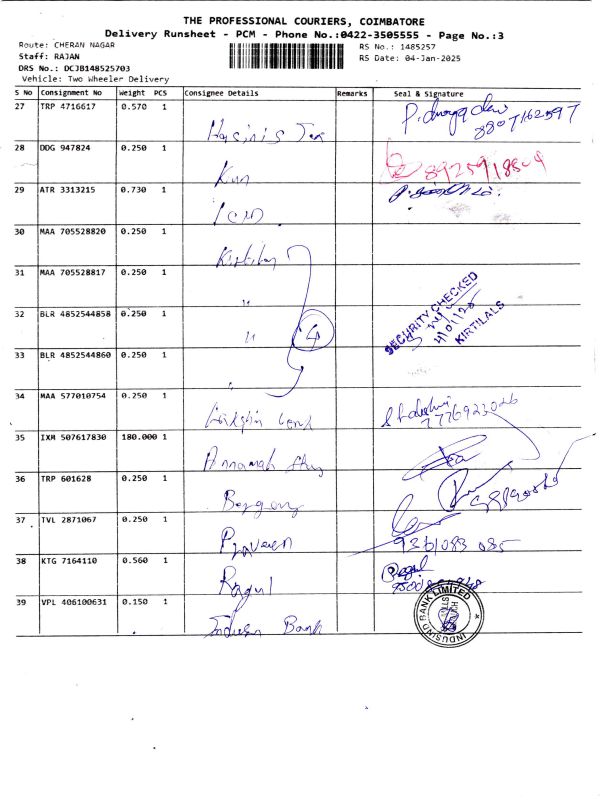 THE PROFESSIONAL COURIERS, COIMBATORE
Delivery Runsheet - PCM - Phone No.:0422-3505555 - Page No.:3
Route: CHERAN NAGAR
RS No.: 1485257
Staff: RAJAN
RS Date: 04-Jan-2025
DRS No.: DCJB148525703
Vehicle: Two Wheeler Delivery
S No Consignment No Weight PCS Consignee Details Remarks Seal & Signature
27 TRP 4716617 0.570 1
8807162597
28 DDG 947824 0.250 1
8925918804
29 ATR 3313215 0.730 1
ICID
30 MAA 705528820 0.250 1
Kirtilay
31 MAA 705528817 0.250 1
"
32 BLR 4852544858 0.250 1
" 4
SECURITY CHECKED
4/01/25
KIRTILALS
33 BLR 4852544860 0.250 1
34 MAA 577010754 0.250 1
7776923026
35 IXM 507617830 180.000 1
36 TRP 601628 0.250 1
37 TVL 2871067 0.250 1
Praveen 9361083 085
38 KTG 7164110 0.560 1
Ragul Ragul
39 VPL 406100631 0.150 1
Indusin Bank
INDUSIND BANK LIMITED